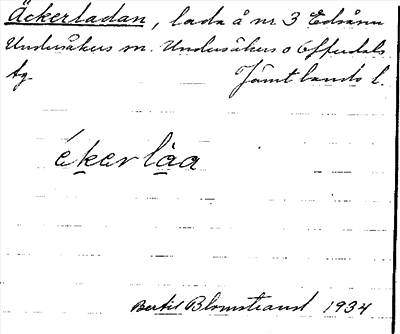 Åkerladan, lada å nr 3 Edsånn
Undersåkers sn. Undersåkers o Offerdals
tg. Jämtlands l.
ékerlåa
Bertil Blomstrand 1934